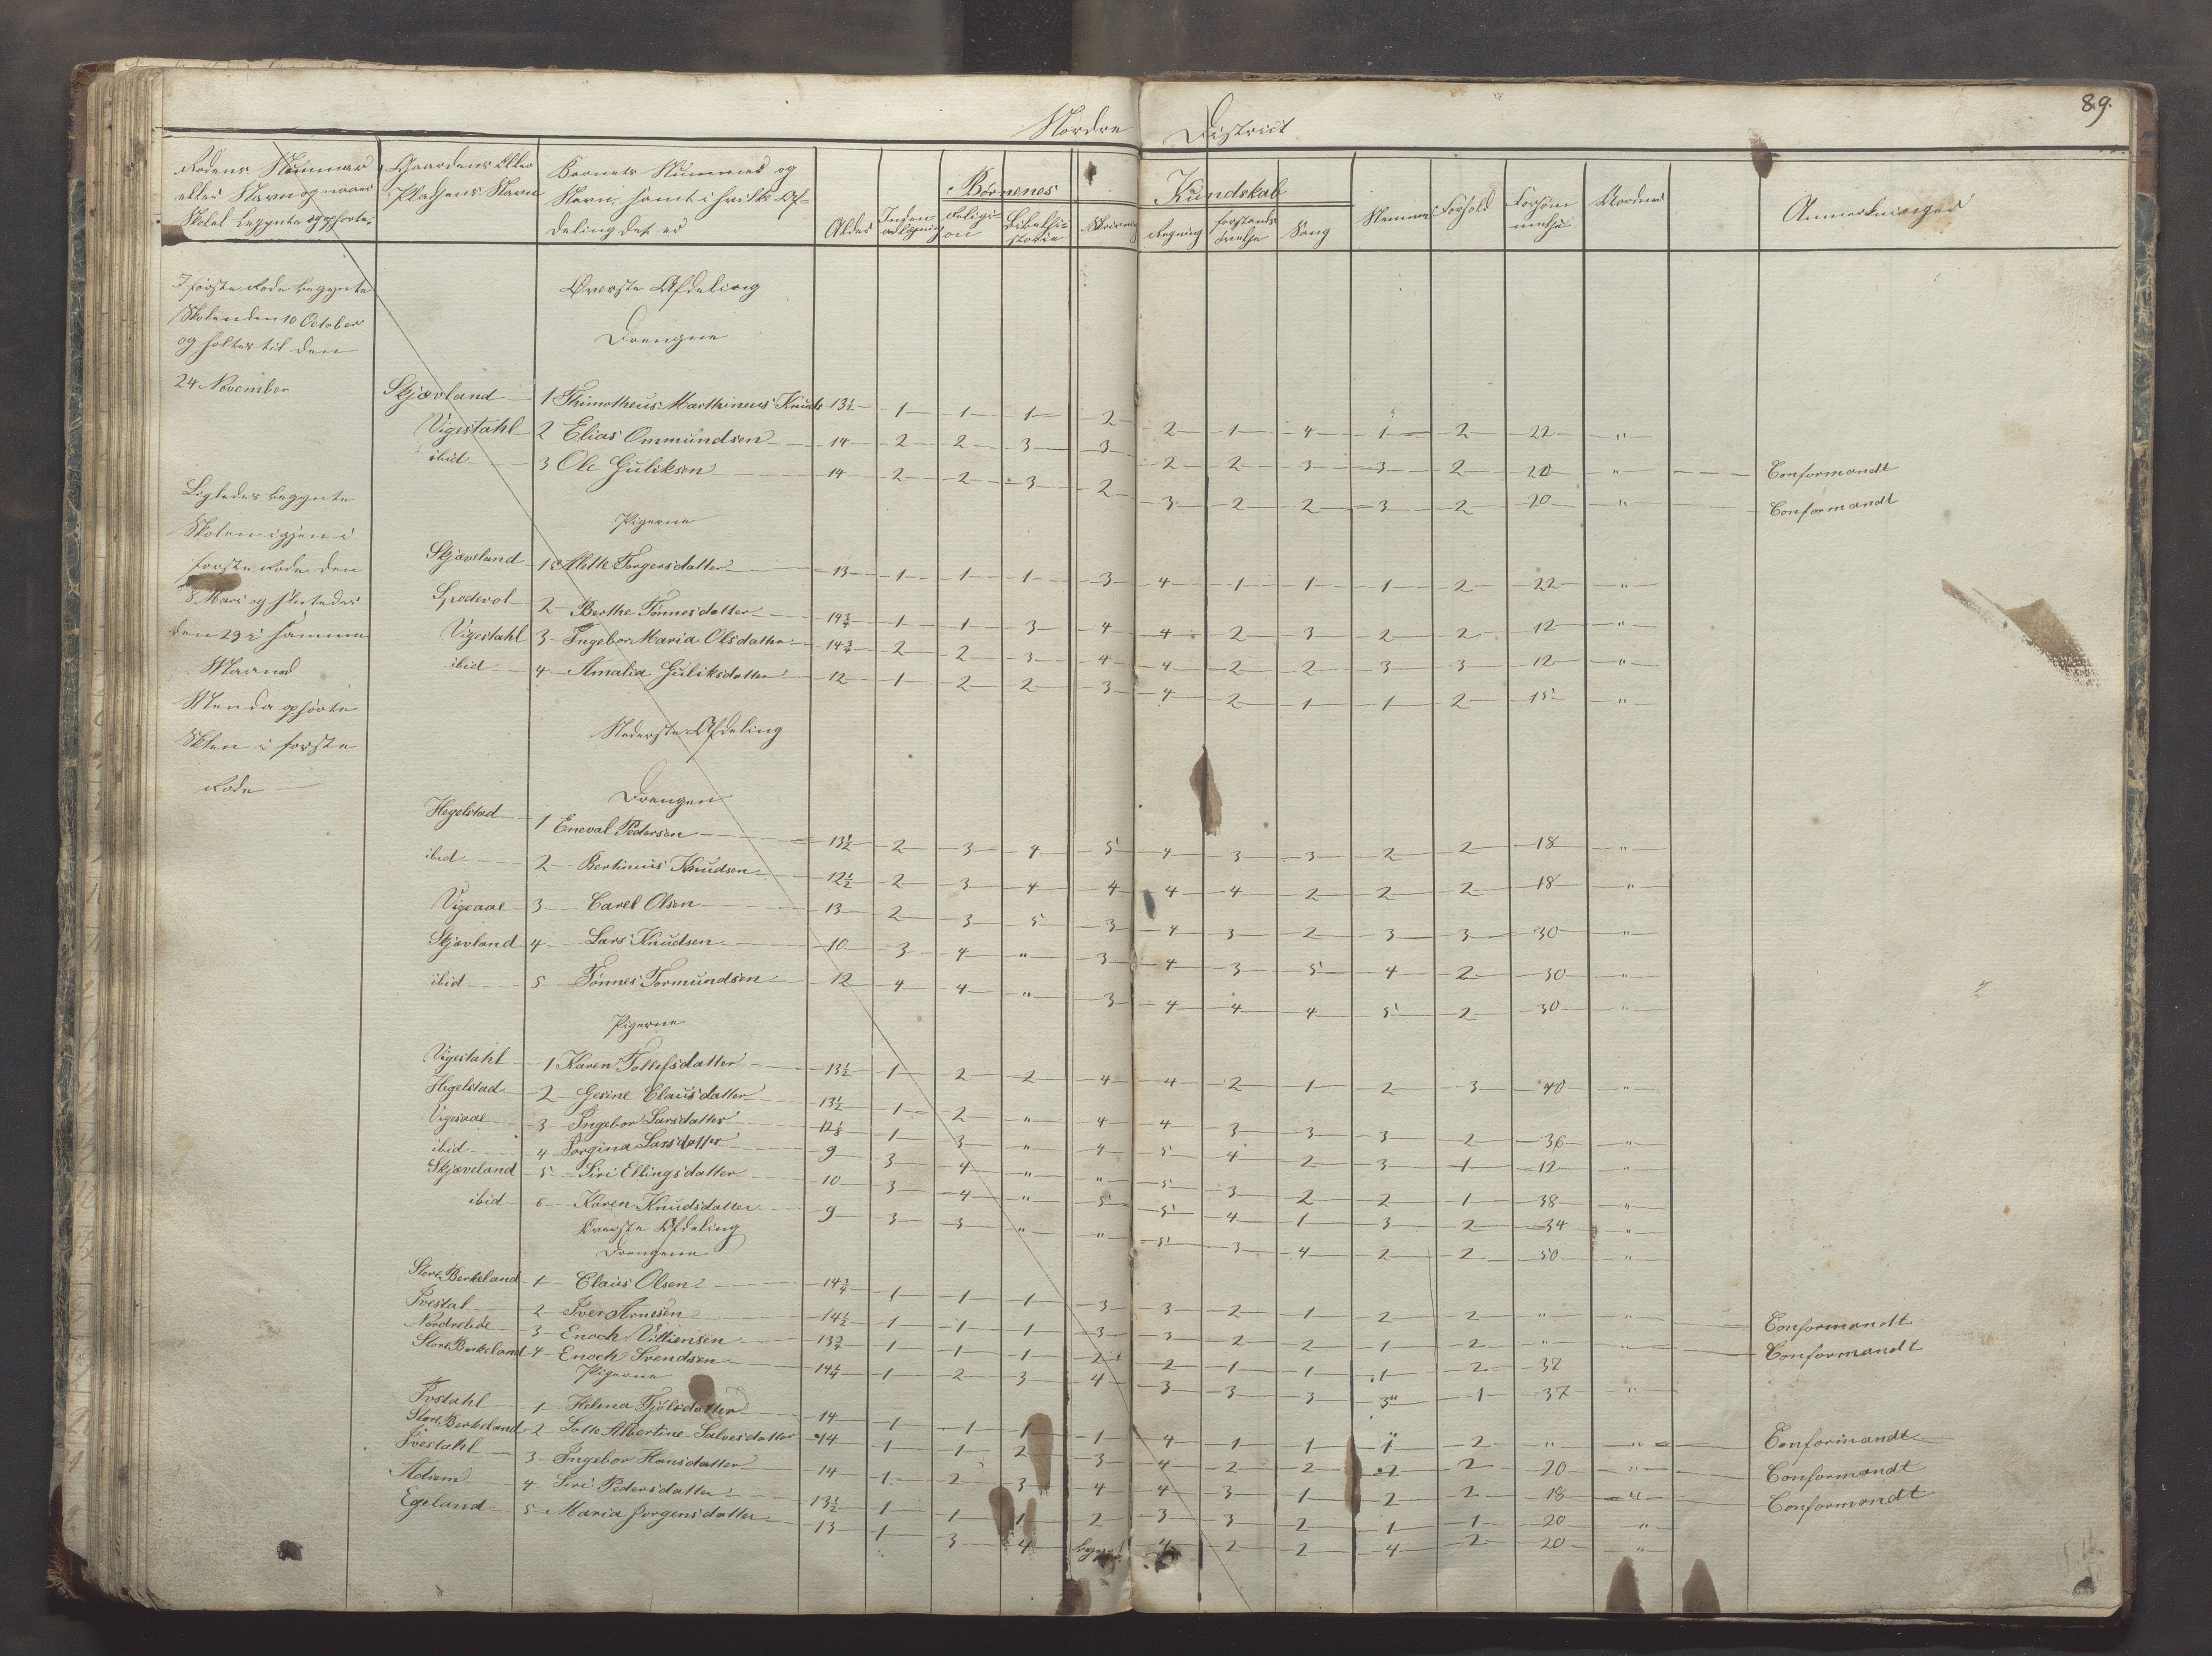 89.
Nordre District
Rodens Nummer eller Navn og naar Skolen begynte og ophørte
Gaardens eller Pladsens Navn
Barnets Nummer og Navn, samt i hvilken Afdeling det er
Alder
Børnenes Kundskab
Religion
Bibelhistorie
Skrivning
Regning
Forstands øvelse
Sang
Nemme
Forhold
Forsømmelse
Anmerkninger
I første Rode begynte
Skolen den 10 October
og holtes til den
24 November
Ligledes begynte
Skolen igjen i
første Rode den
8 Mars og sluttedes
den 29 i samme
Maaned
Men da ophørte
Skolen i første
Rode
Øverste Afdeling
Drengene
Skjævland 1 Thimotheus Marthinius Knuds 13½ 1 1 1 2 2 1 4 1 2 22 "
Vigestahl 2 Elias Ommundsen 14 2 2 3 3 2 2 3 3 2 20 " Conformandt
ibid 3 Ole Guliksen 14 2 2 3 2 3 2 2 3 2 20 " Conformandt
Pigerne
Skjæveland 1 Mette Torgersdatter 13 1 1 1 3 4 1 1 1 2 22 "
2 Berthe Tønnesdatter 14¾ 1 1 3 4 4 2 3 2 2 12 "
Vigestahl 3 Ingebor Maria Olsdatter 14¾ 2 2 3 4 4 2 2 3 3 12 "
ibid 4 Amalia Guliksdatter 12 1 2 2 3 4 2 1 1 2 15 "
Nederste Afdeling
Drengene
Hegelstad 1 Eneval Pedersen 13½ 2 3 4 5 4 3 3 2 2 18 "
ibid 2 Bertinius Knudsen 12½ 2 3 4 4 4 4 2 2 2 18 "
Vigeaae 3 Carel Olsen 13 2 3 5 3 4 3 2 3 3 30 "
Skjævland 4 Lars Knudsen 10 3 4 " 3 4 3 5 4 2 30 "
ibid 5 Tønnes Tormundsen 12 4 4 " 3 4 4 4 5 2 30 "
Pigerne
Vigestahl 1 Karen Tollefsdatter 13½ 1 2 2 4 4 2 1 2 3 40 "
Hegelstad 2 Gesine Clausdatter 13½ 1 2 " 4 4 3 3 3 2 36 "
Vigeaae 3 Ingebor Larsdatter 1 3 " 4 5 4 2 3 1 12 "
ibid 4 Jorgina Larsdatter 9 3 4 " " 5 3 2 2 1 38 "
Skjæveland 5 Siri Ellingsdatter 10 3 4 " 5 5 4 1 3 2 34 "
ibid 6 Karen Knudsdatter 9 3 3 " " 5 3 4 2 2 50 "
Øverste Afdeling
Drengene
Store Berkeland 1 Claus Olsen 14¾ 1 1 1 3 3 2 1 2 2 " " Conformandt
Ivestal 2 Iver Arnesen 14½ 1 1 1 3 3 2 2 1 2 " " Conformandt
3 Enoch Villiensen 13¾ 1 1 1 2 2 1 1 1 2 37
Store Berkeland 4 Enoch Svendsen 14¼ 1 2 3 4 3 3 3 3 1 37 "
Pigerne
Ivstahl 1 Helena Tjølsdatter 14 1 1 1 1 4 1 1 1 2 " " Conformandt
Store Berkeland 2 Lotte Albertine Salvesdatter 14 1 1 2 3 4 2 2 2 2 20 " Conformandt
Ivestahl 3 Ingebor Hansdatter 14 1 2 3 4 4 3 1 2 2 18 " Conformandt
4 Siri Pedersdatter 13½ 1 1 1 2 3 3 2 1 1 20 "
Egeland 5 Maria Jorgensdatter 13 1 3 4 4 2 2 4 2 20 "